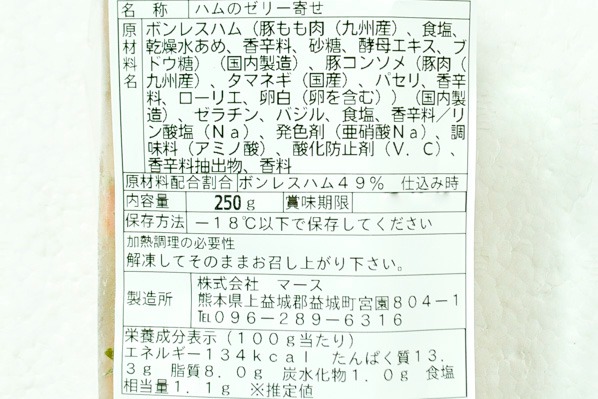 名　称　ハムのゼリー寄せ
原材料名　ボンレスハム（豚もも肉（九州産）、食塩、
乾燥水あめ、香辛料、砂糖、酵母エキス、ブ
ドウ糖）（国内製造）、豚コンソメ（豚肉（
九州産）、タマネギ（国産）、パセリ、香辛
料、ローリエ、卵白（卵を含む））（国内製
造）、ゼラチン、バジル、食塩、香辛料／リ
ン酸塩（Ｎａ）、発色剤（亜硝酸Ｎａ）、調
味料（アミノ酸）、酸化防止剤（Ｖ．Ｃ）、
香辛料抽出物、香料
原材料配合割合　ボンレスハム４９％　仕込み時
内容量　250ｇ　賞味期限
保存方法　－１８℃以下で保存してください
加熱調理の必要性
解凍してそのままお召し上がり下さい。
製造所　株式会社　マース
熊本県上益城郡益城町宮園８０４－１
℡０９６－２８９－６３１６
栄養成分表示（１００ｇ当たり）
エネルギー１３４ｋｃａｌ　たんぱく質１３．
３ｇ　脂質８．０ｇ　炭水化物１．０ｇ　食塩
相当量１．１ｇ　※推定値